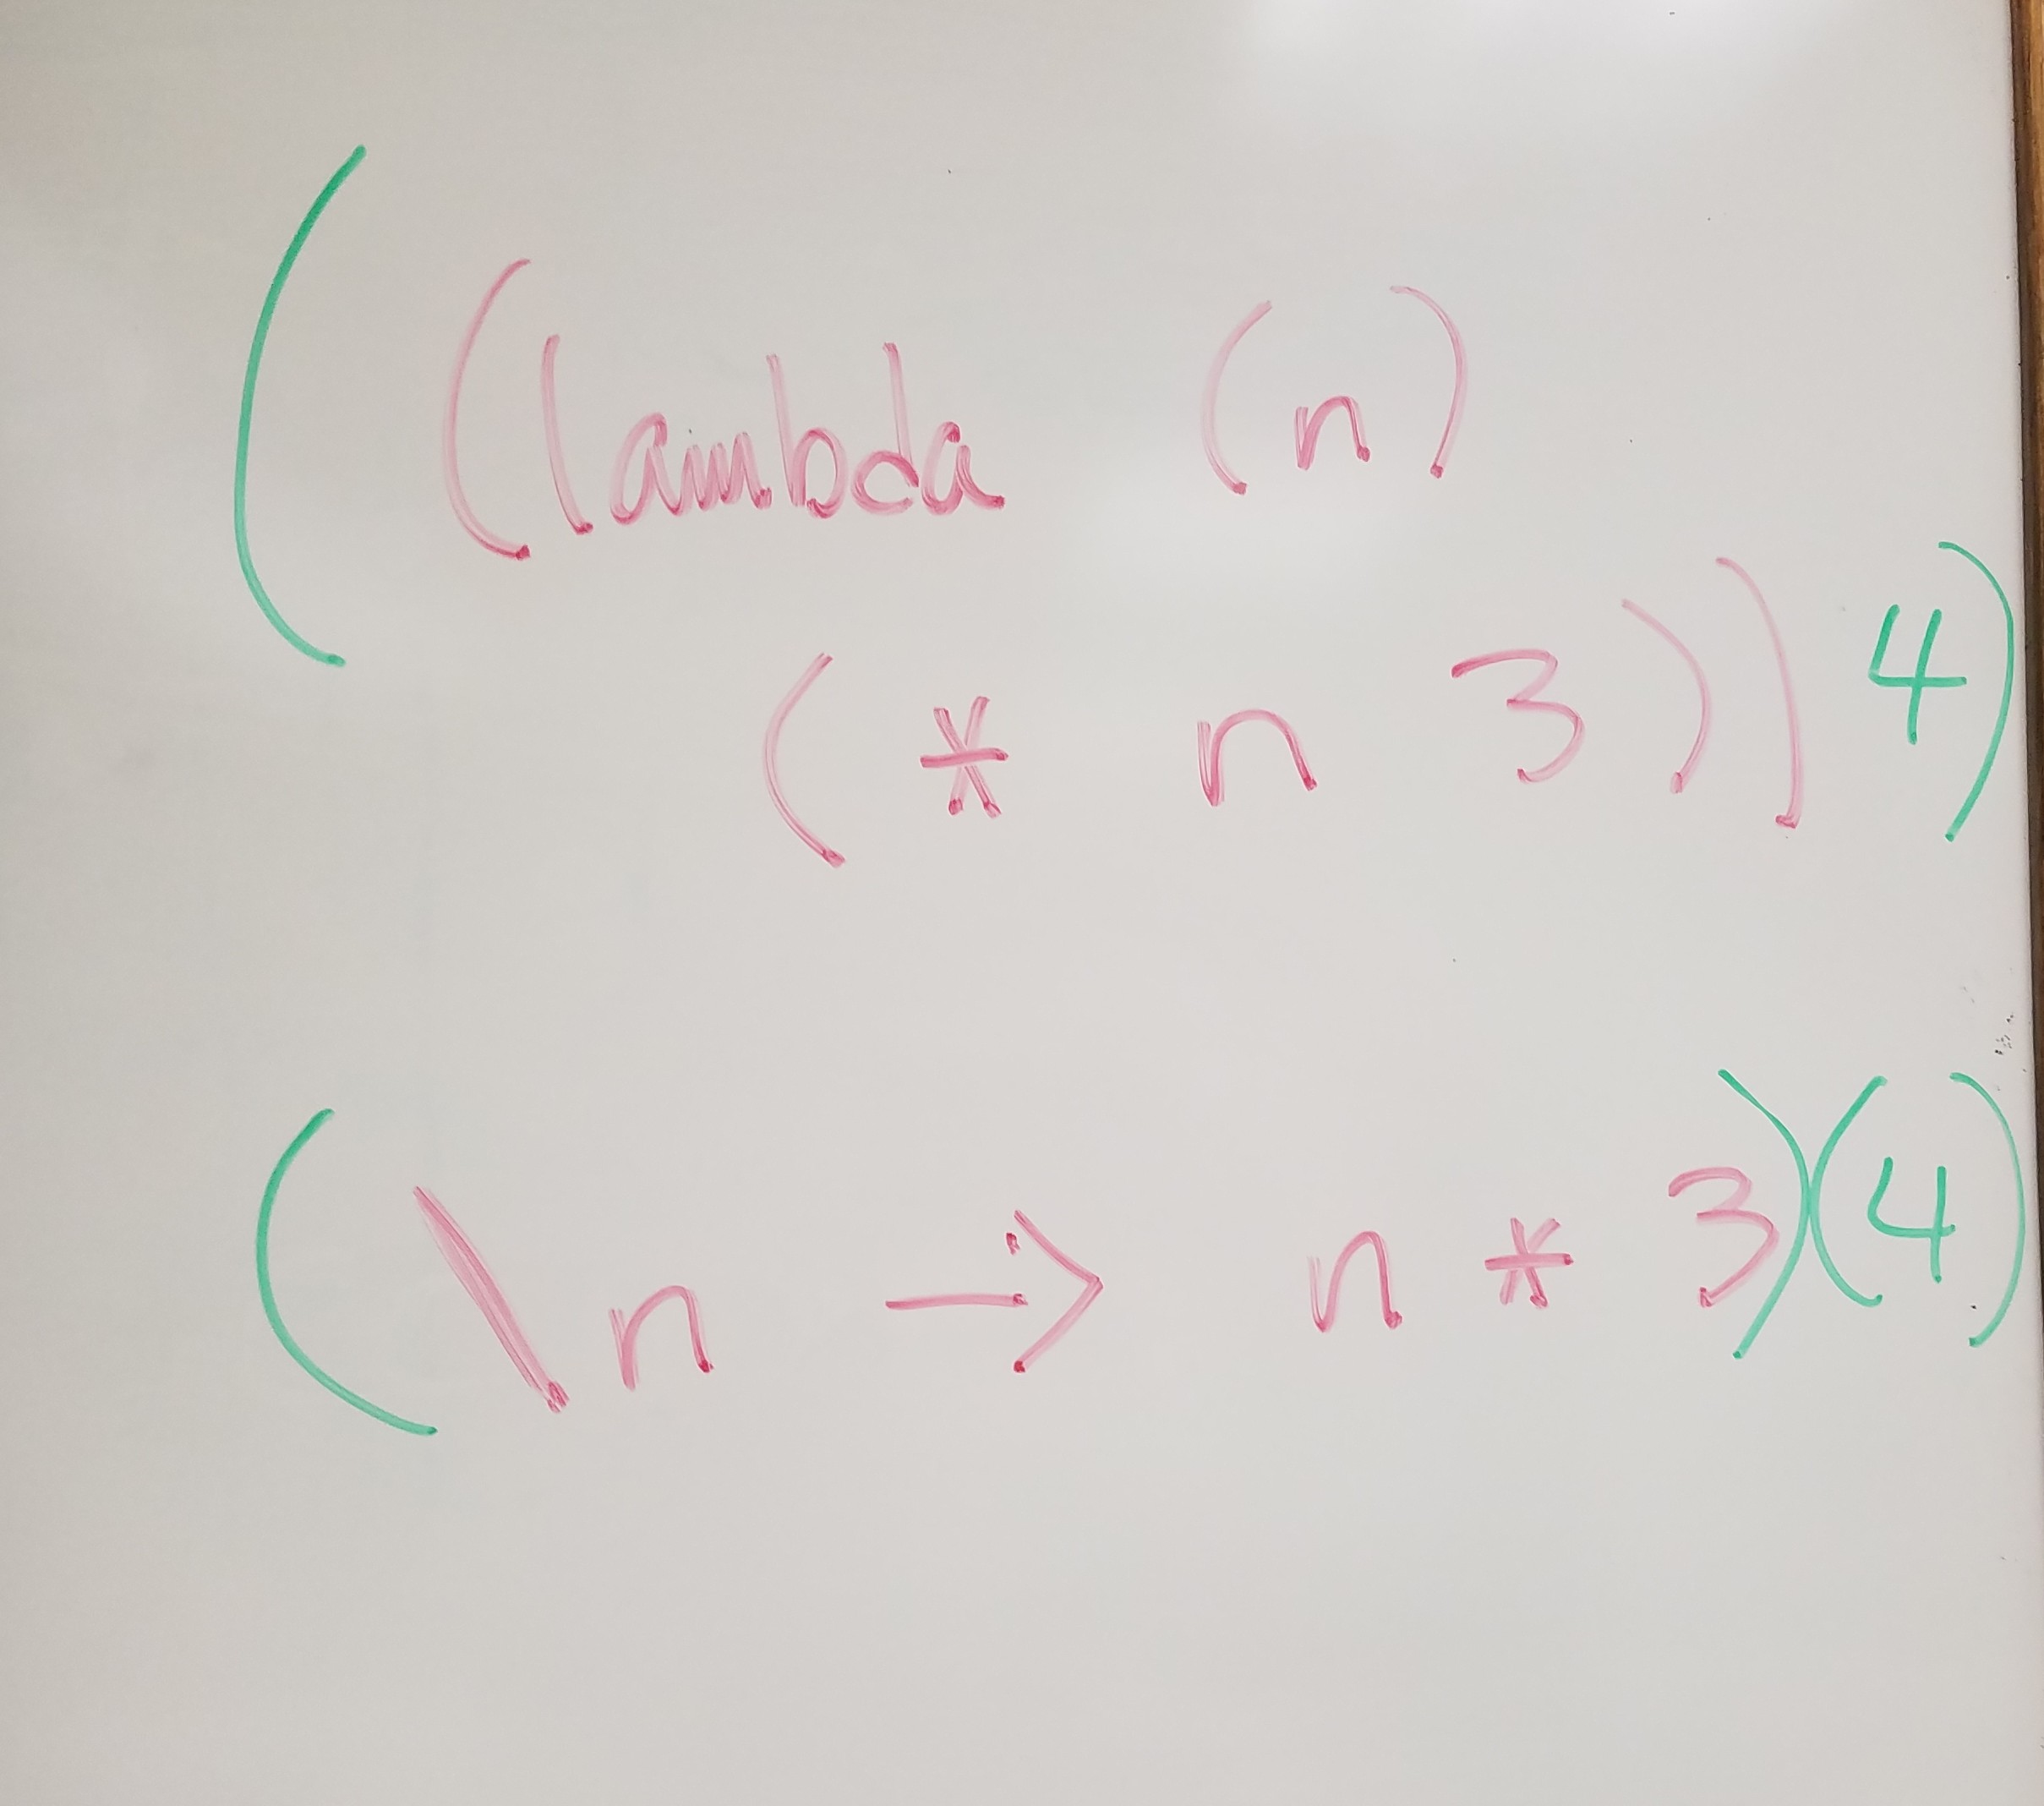 ((lambda (n)
(* n 3)) 4)
(\n -> n * 3)(4)